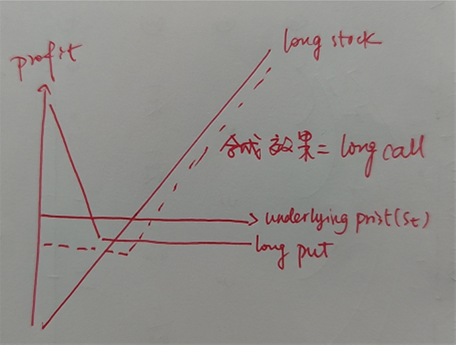 long stock
profit
合成效果=long call
underlying prist(St)
long put